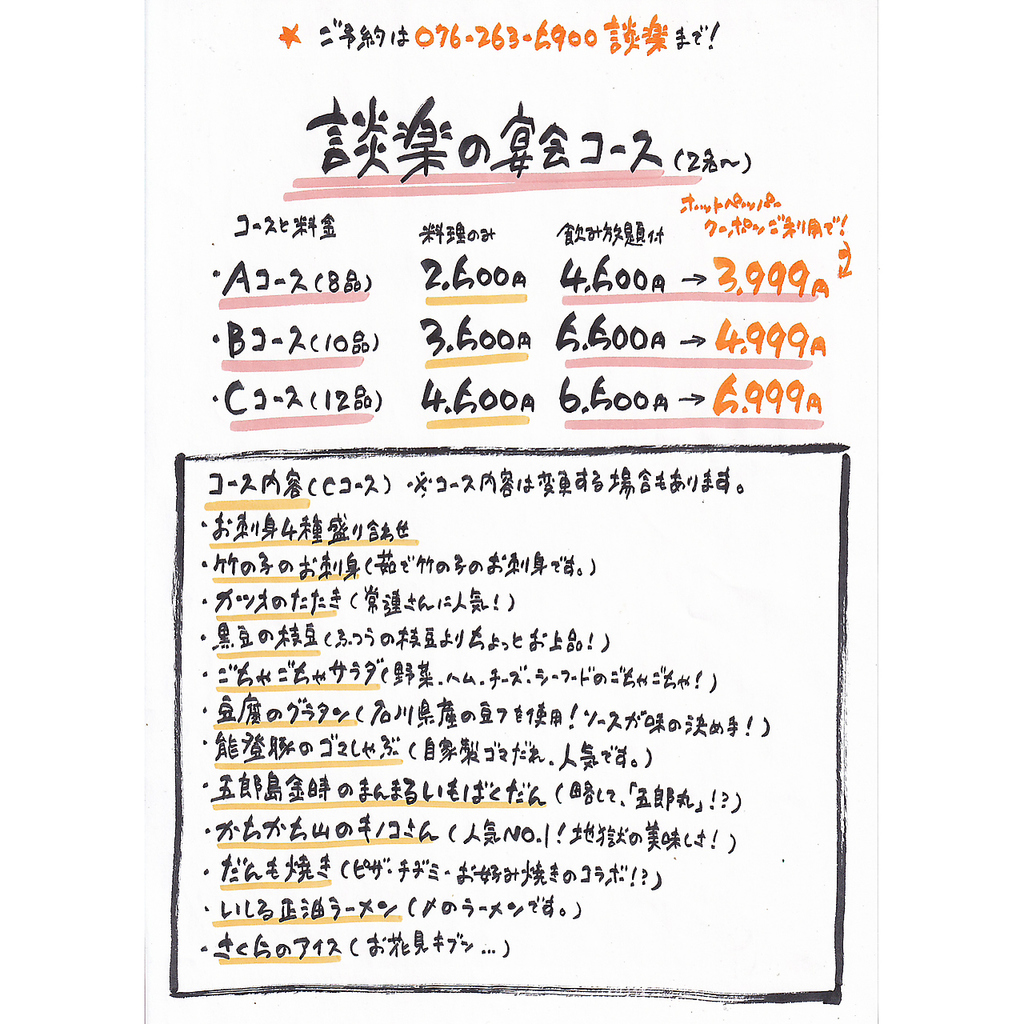 ★ ご予約は076-263-5900談楽まで!
談楽の宴会コース(2名〜)
ホットペッパー
クーポンご利用で!
コースと料金 料理のみ 飲み放題付
・Aコース(8品) 2.500円 4.500円→3.999円
・Bコース(10品) 3.500円 5.500円→4.999円
・Cコース(12品) 4.500円 6.500円→5.999円
コース内容(Cコース) ※コース内容は変更する場合もあります。
・お刺身4種盛り合わせ
・竹の子のお刺身(茹で竹の子のお刺身です。)
・カツオのたたき(常連さんに人気!)
・黒豆の枝豆(ふつうの枝豆よりちょっとお上品!)
・ごちゃごちゃサラダ(野菜.ハム.チーズ.シーフードのごちゃごちゃ!)
・豆腐のグラタン(石川県産の豆フを使用!ソースが味の決め手!)
・能登豚のゴマしゃぶ(自家製ゴマだれ.人気です。)
・五郎島金時のまんまるいもばくだん(略して、「五郎丸」!?)
・かちかち山のキノコさん(人気NO.1!地獄の美味しさ!)
・だんも焼き(ピザ・チヂミ・お好み焼きのコラボ!?)
・いしる正油ラーメン(〆のラーメンです。)
・さくらのアイス(お花見キブン…)